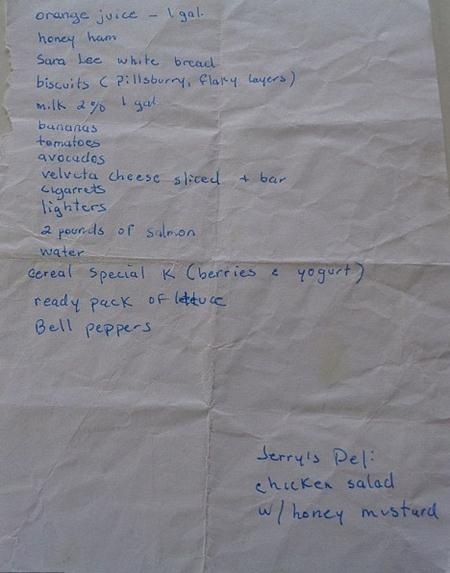 orange juice - 1 gal.
honey ham
Sara Lee white bread
biscuits (Pillsburry, flaky layers)
milk 2% 1 gal
bananas
tomatoes
avocados
velveta cheese sliced + bar
cigarrets
lighters
2 pounds of salmon
water
cereal Special K (berries & yogurt)
ready pack of lettuce
Bell peppers
Jerry's Deli:
chicken salad
w/ honey mustard